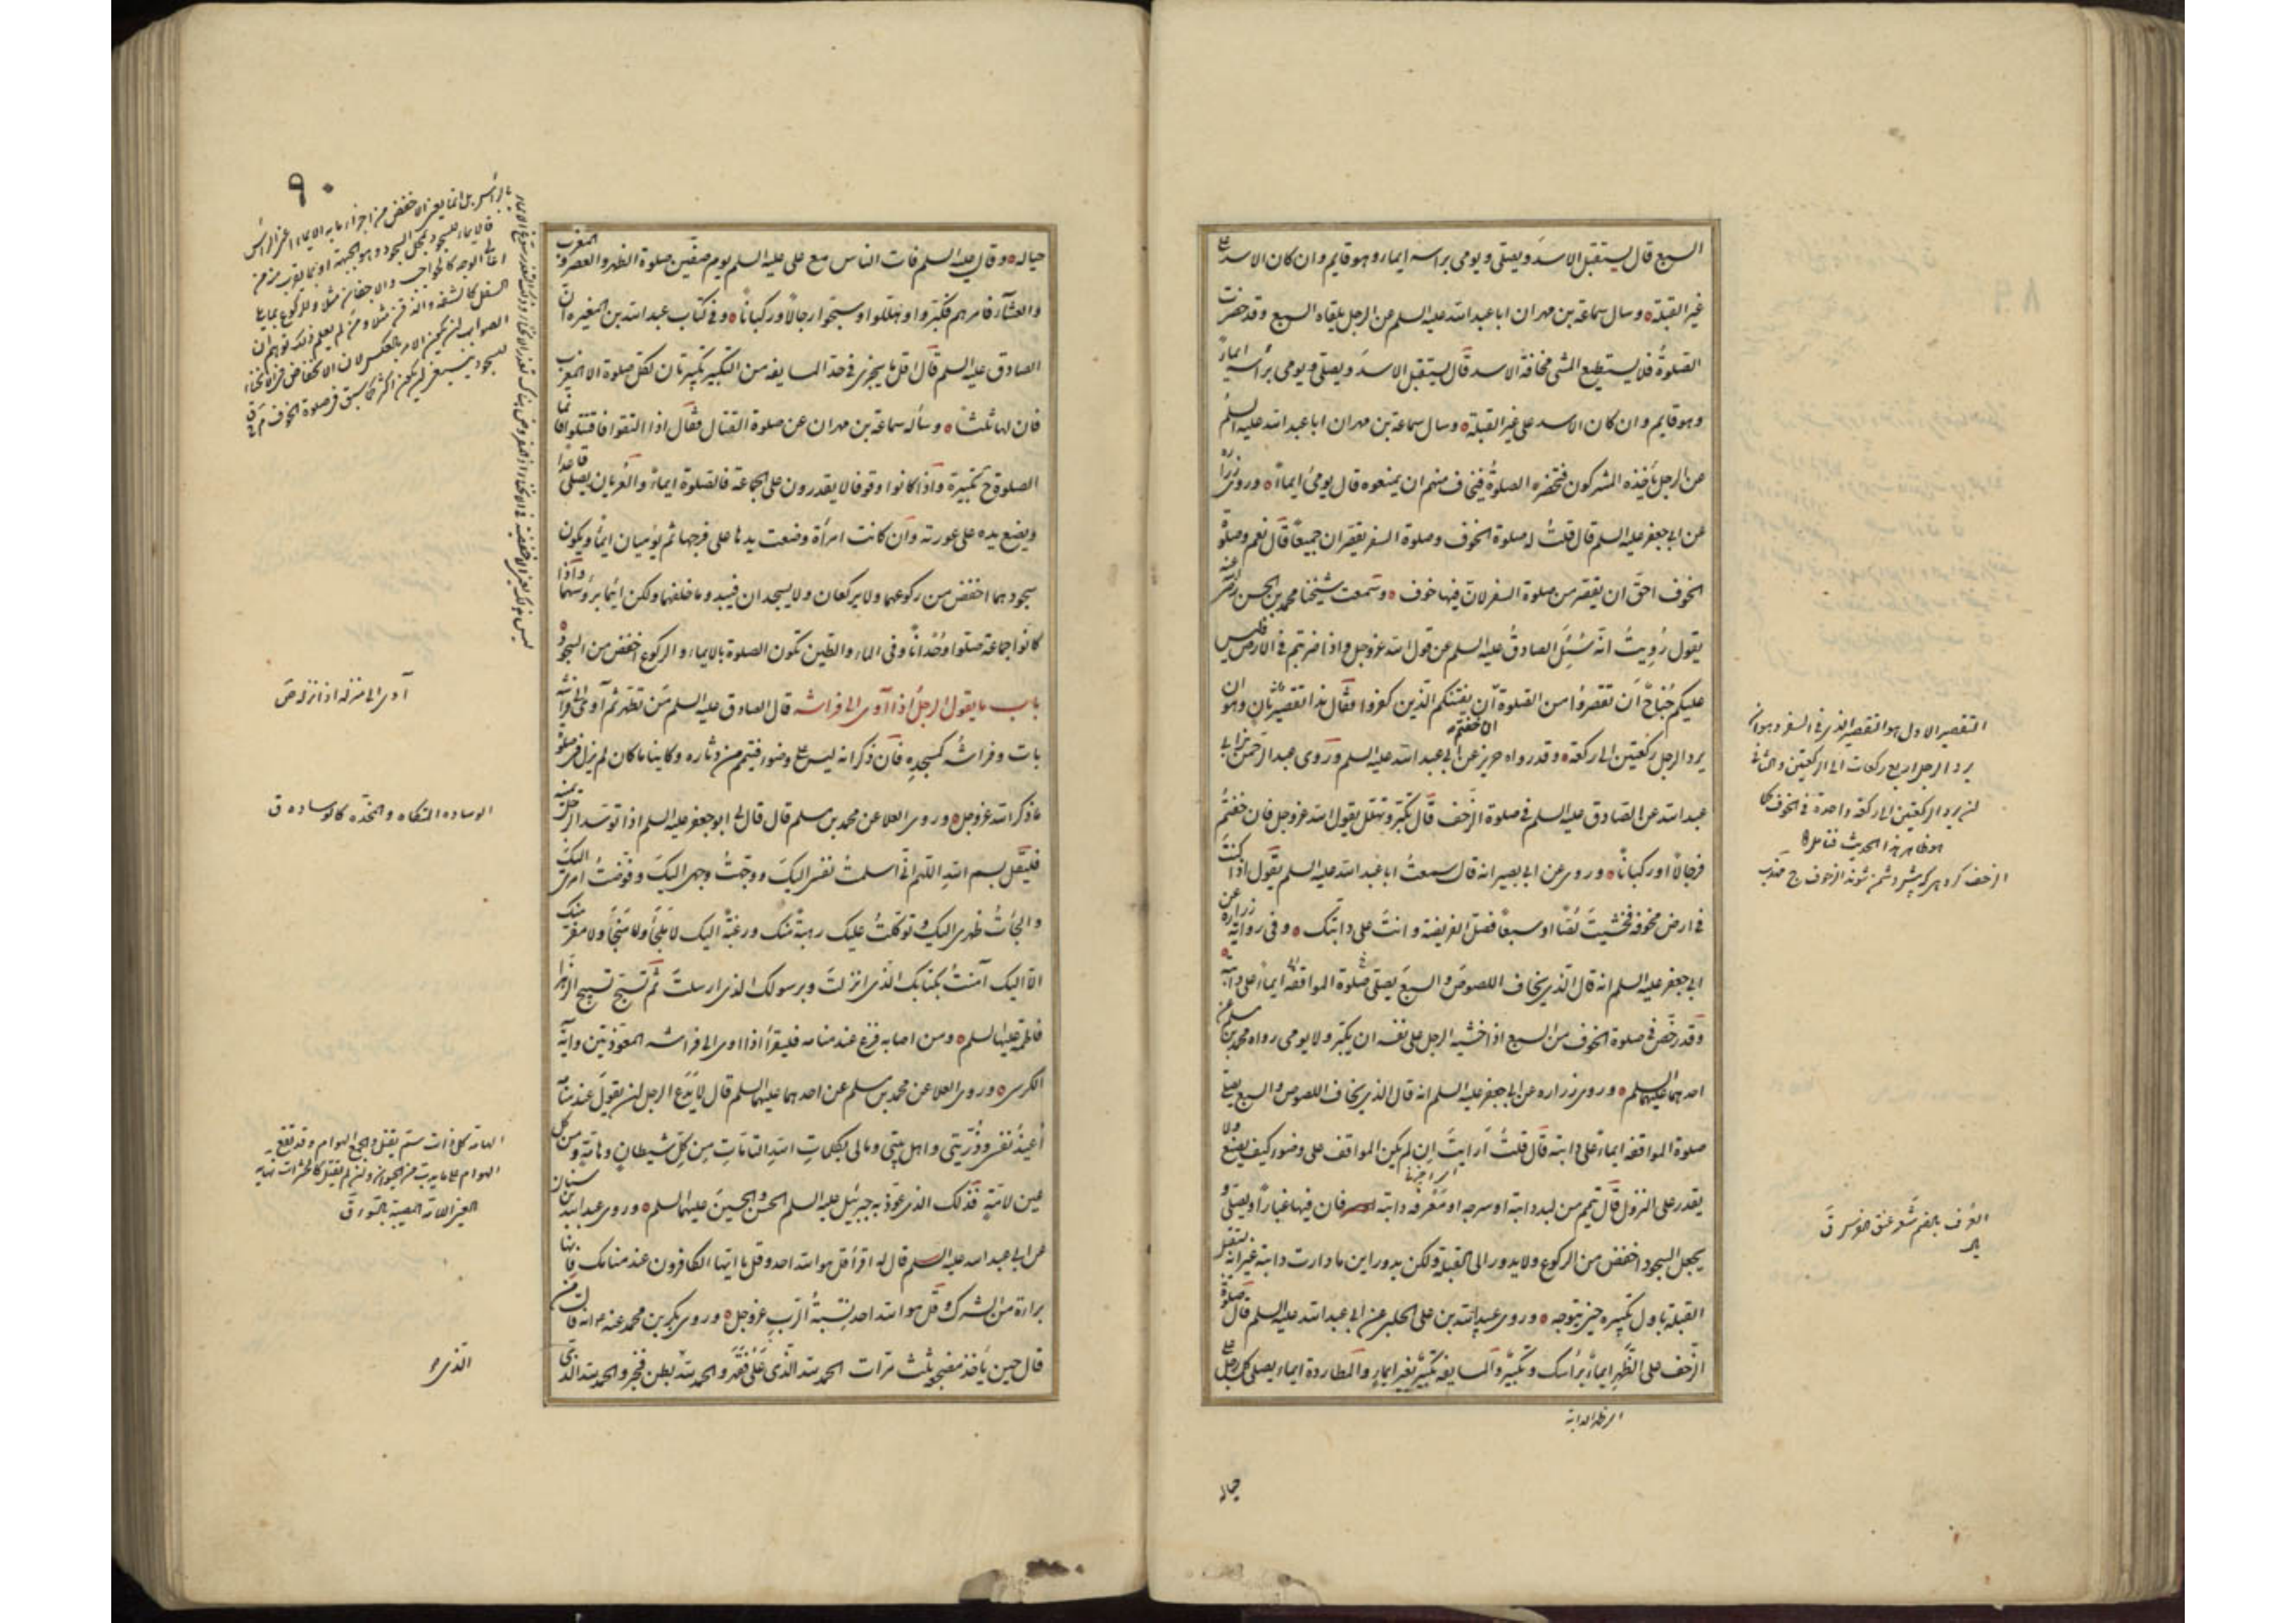 السبع قال يستقبل الاسد ويصلى ويومى براسه ايماء وهو قايم وان كان الاسد على
غير القبلة وسال سماعة بن مهران ابا عبدالله عليه السلم عن الرجل يلقاه السبع وقد حضرت
الصلوة فلا يستطيع المشى مخافة الاسد قال يستقبل الاسد ويصلى ويومى برأسه ايماءً
وهو قايم وان كان الاسد على غير القبلة وسال سماعة بن مهران ابا عبدالله عليه السلم
عن الرجل يأخذه المشركون فتحضره الصلوة فيخاف منهم ان يمنعوه قال يومئ ايماءً وروى زرارة
عن ابى جعفر عليه السلم قال قلت له صلوة الخوف وصلوة السفر يقصران جميعاً قال نعم وصلوة
الخوف احق ان يقصر من صلوة السفر لان فيها خوف وسمعت شيخنا محمد بن الحسن رضى الله عنه
يقول رُوِيتُ انه سُئِلَ الصادق عليه السلم عن قول الله عز وجل واذا ضربتم فى الارض فليس
عليكم جُناح ان تقصروا من الصلوة ان خفتم ان يفتنكم الذين كفروا فقال هذا تقصير ثان وهو ان
يرد الرجل ركعتين الى ركعة وقد رواه حريز عن ابى عبدالله عليه السلم وروى عبد الرحمن بن ابى
عبدالله عن الصادق عليه السلم فى صلوة الزحف قال تكبر وتهلل يقول الله عز وجل فان خفتم
فرجالا او ركباناً وروى عن ابى بصير انه قال سمعت ابا عبدالله عليه السلم يقول اذا كنت
فى ارض مخوفة فخشيت لصّاً او سبعاً فصل الفريضة وانت على دابتك وفى رواية زرارة عن
ابى جعفر عليه السلم انه قال الذى يخاف اللصوص والسبع يصلى صلوة المواقفه ايماءً على دابته
وقد رخص فى صلوة الخوف من السبع اذا خشيه الرجل على نفسه ان يكبر ولا يومى رواه محمد بن مسلم عن
احدهما عليهما السلم وروى زراره عن ابى جعفر عليه السلم انه قال الذى يخاف اللصوص والسبع يصلى
صلوة المواقفه ايماءً على دابته قال قلت أرايت ان لم يكن المواقف على وضوء كيف يصنع ولا
يقدر على النزول قال تيمم من لبد دابته او سرجه او مَعْرفه دابته فان فيها غباراً ويصلى و
يجعل السجود اخفض من الركوع ولا يدور الى القبلة ولكن يدور اين ما دارت دابته غير انه يستقبل
القبلة باول تكبيره حين يتوجه وروى عبدالله بن على الحلبى عن ابى عبدالله عليه السلم قال صلوة
الزحف على الظهر ايماءٌ برأسك وتكبير والمسايفه تكبير بغير ايماء والمطاردة ايماء يصلى كل رجل على
اى ظهر الدابه
حياله
التقصير الاول هو التقصير الذى فى السفر وهو ان
يرد الرجل اربع ركعات الى الركعتين والثانى
ان يرد الركعتين الى ركعة واحدة فى الخوف كما
هو ظاهر هذا الحديث فتامل
العُرف بالضم شعر عنق الفرس ق
٩٠
حياله وقال عليه السلم فات الناس مع على عليه السلم يوم صفين صلوة الظهر والعصر والمغرب
والعشآء فامرهم فكبروا وهللوا وسبحوا رجالاً وركباناً وفى كتاب عبدالله بن المغيره ان
الصادق عليه السلم قال اقل ما يجزى فى حد المسايفه من التكبير تكبيرتان لكل صلوة الا المغرب
فان لها ثلثاً وسأله سماعة بن مهران عن صلوة القتال فقال اذا التقوا فاقتتلوا فانما
الصلوة ح تكبيرة واذا كانوا وقوفا لا يقدرون على الجماعة فالصلوة ايماءً والعُريان يصلى قاعدا
ويضع يده على عورته وان كانت امرأة وضعت يدها على فرجها ثم يؤميان ايماءً ويكون
سجودهما اخفض من ركوعهما ولا يركعان ولا يسجدان فيبدو ما خلفهما ولكن ايماءً برؤسهما واذا
كانوا جماعة صلوا وُحْداناً وفى الماء والطين تكون الصلوة بالايماء والركوع اخفض من السجود
باب ما يقول الرجل اذا آوى الى فراشه قال الصادق عليه السلم من تطهر ثم آوى الى فراشه
بات وفراشه كمسجده فان ذكر انه ليس على وضوء فتيمم من دثاره وكاينا ما كان لم يزل فى صلوة
ما ذكر الله عز وجل وروى العلا عن محمد بن مسلم قال قال لى ابو جعفر عليه السلم اذا توسد الرجل يمينه
فليقل بسم الله اللهم انى اسلمت نفسى اليك ووجهت وجهى اليك وفوضت امرى اليك
والجأت ظهرى اليك وتوكلت عليك رهبةً منك ورغبةً اليك لا ملجأ ولا منجأ ولا مفر منك
الا اليك آمنت بكتابك الذى انزلت وبرسولك الذى ارسلت ثم تسبح تسبيح الزهرا
فاطمة عليها السلم ومن اصابه فزع عند منامه فليقرأ اذا اوى الى فراشه المعوذتين وآية
الكرسى وروى العلا عن محمد بن مسلم عن احدهما عليهما السلم قال لا يَدَع الرجل ان يقول عند منامه
أعيذ نفسى وذريتى واهل بيتى ومالى بكلمات الله التامات من كل شيطانٍ وهامةٍ ومن كل
عين لامةٍ فذلك الذى عوذ به جبرئيل عليه السلم الحسن والحسين عليهما السلم وروى عبدالله بن سنان
عن ابى عبد الله عليه السلم قال له اقرأ قل هو الله احد وقل يا ايها الكافرون عند منامك فانها
براءة من الشرك وقل هو الله احد نسبة الرب عز وجل وروى بكر بن محمد عنه ع انه قال من
قال حين يأخذ مضجعه ثلث مرات الحمد لله الذى علا فقهر والحمد لله بطن فخبر والحمد لله الذى
آوى الى منزله اذا نزله ص
الوساده المتكاه والمخده كالوساده ق
الهامّه كل ذات سم يقتل والجمع الهوام وقد تقع
الهوام على ما يدب من الحيوان وان لم يقتل كالحشرات نهايه
العين اللامّه المصيبة بالسوء ق
الذى